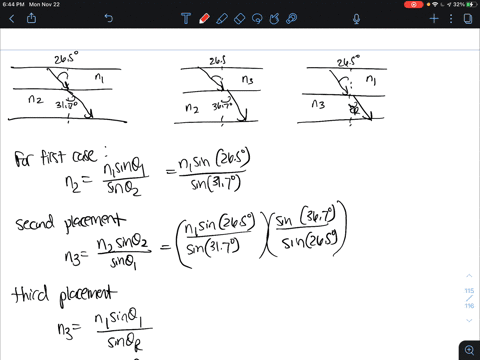 6:44 PM Mon Nov 22
32%
26.5°
n₁
n₂
31.7°
26.5
n₃
n₂
36.7°
26.5°
n₁
n₃
For first case:
n₂ = n₁sinθ₁ / sinθ₂ = n₁sin (26.5°) / sin(31.7°)
second placement
n₃ = n₂sinθ₂ / sinθ₁ = (n₁sin(26.5°) / sin(31.7°)) (sin (36.7°) / sin(26.5°))
third placement
n₃ = n₁sinθ₁ / sinθR
115
/
116